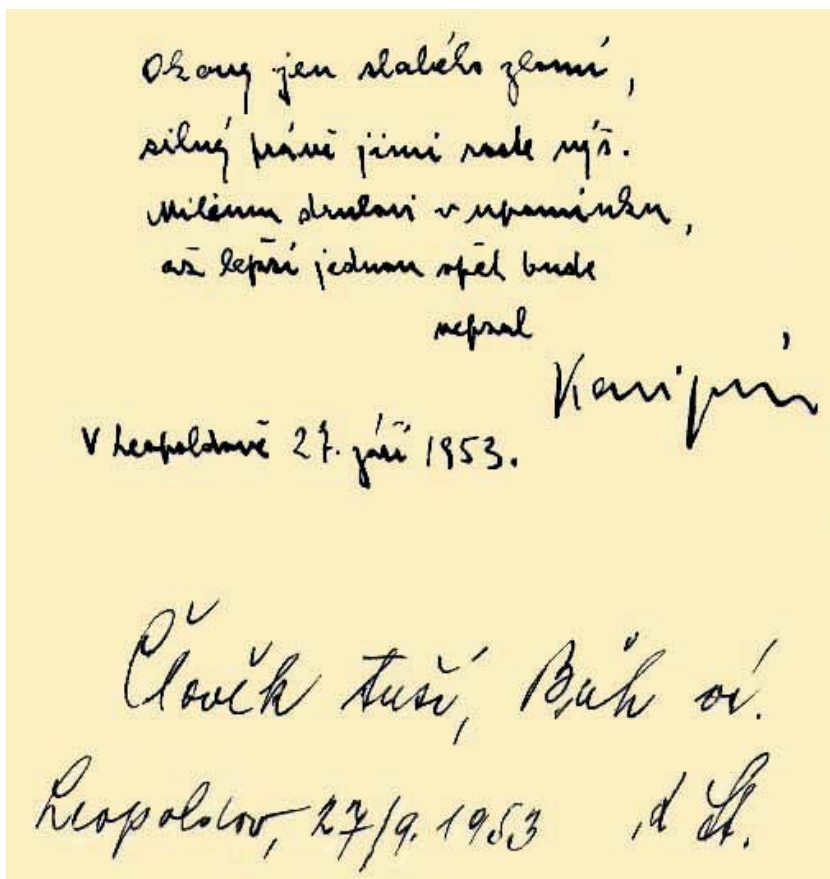 Okovy jen slabého zlomí,
silný právě jimi roste výš.
Milému druhovi v upomínku,
až lepší jednou opět bude
nepsal
V Leopoldově 27. září 1953.
Člověk tuší, Bůh ví.
Leopoldov, 27/9. 1953